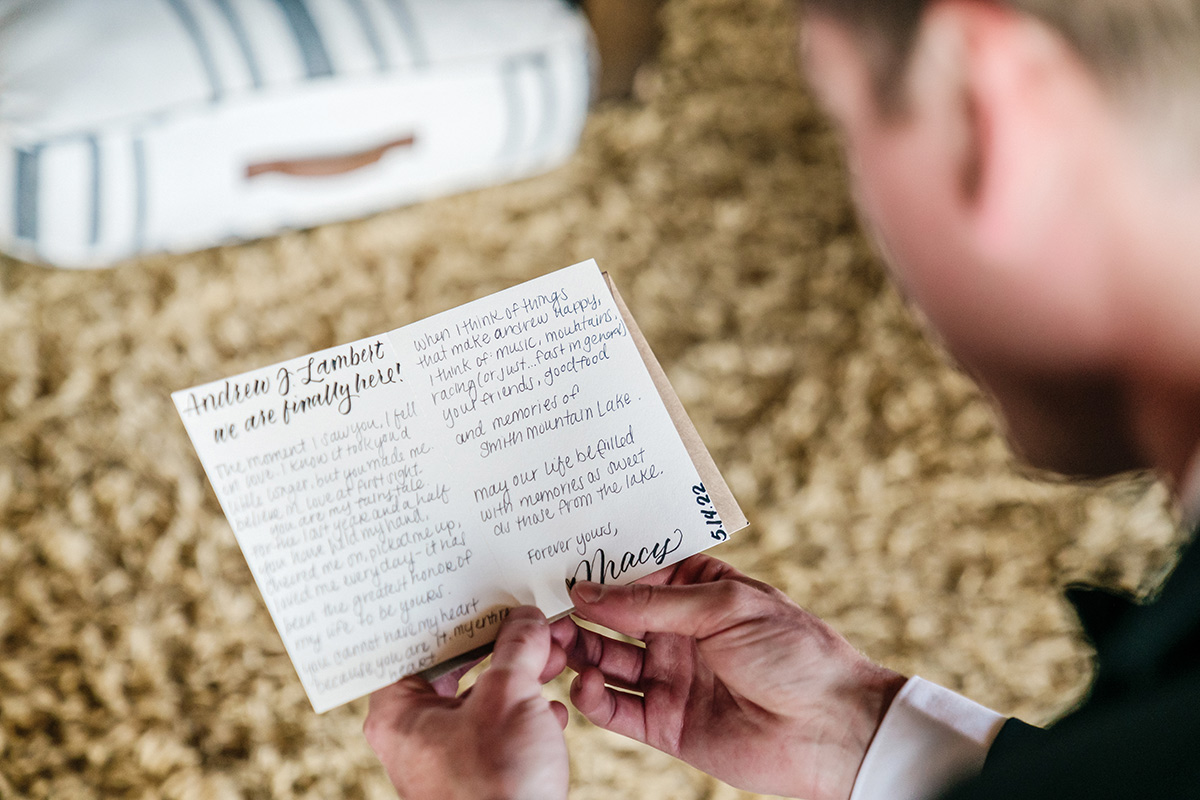 Andrew J. Lambert
we are finally here!
The moment I saw you, I fell
in love. I know it took you a
little longer, but you made me
believe in love at first sight.
you are my fairytale.
For the last year and a half
you have held my hand,
cheered me on, picked me up,
loved me every day - it has
been the greatest honor of
my life to be yours.
you cannot have my heart
because you are it. my entire
heart.
when I think of things
that make andrew happy,
I think of: music, mountains,
racing (or just... fast in general)
your friends, good food
and memories of
Smith Mountain Lake.
may our life be filled
with memories as sweet
as those from the lake.
Forever yours,
Macy
5.14.22